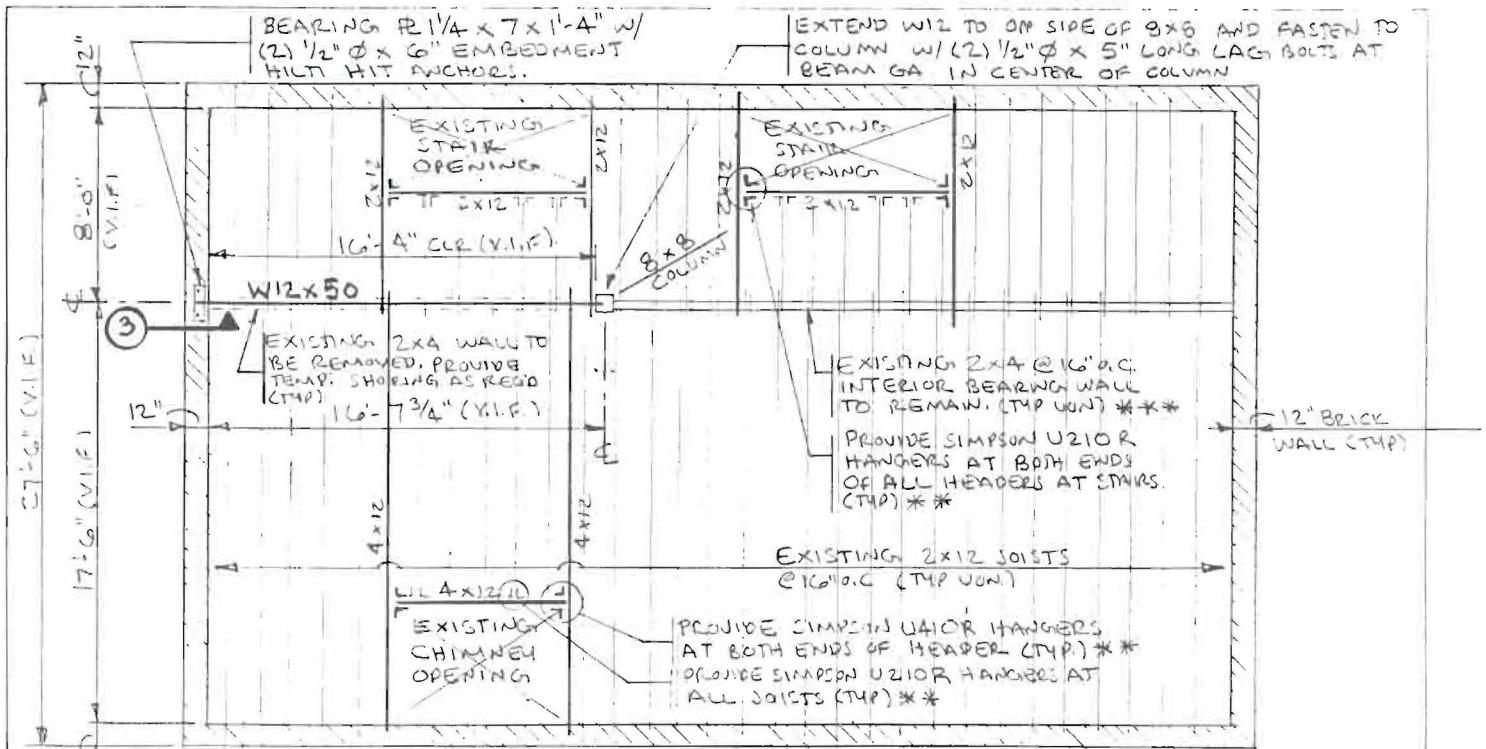 BEARING PL 1 1/4 x 7 x 1'-4" W/
(2) 1/2" Ø x 6" EMBEDMENT
HILTI HIT ANCHORS.
EXTEND W12 TO OPP SIDE OF 8x8 AND FASTEN TO
COLUMN W/ (2) 1/2" Ø x 5" LONG LAG BOLTS AT
BEAM GA IN CENTER OF COLUMN
12"
EXISTING
STAIR
OPENING
EXISTING
STAIR
OPENING
2x12
2x12
2x12
2x12
2x12
2x12
8'-0"
(V.I.F)
16'-4" CLR (V.I.F).
8x8
COLUMN
℄
W12x50
3
EXISTING 2x4 WALL TO
BE REMOVED. PROVIDE
TEMP. SHORING AS REQ'D
(TYP)
12"
16'-7 3/4" (V.I.F.)
℄
EXISTING 2x4 @ 16" O.C.
INTERIOR BEARING WALL
TO REMAIN. (TYP UON) ***
12" BRICK
WALL (TYP)
PROVIDE SIMPSON U210R
HANGERS AT BOTH ENDS
OF ALL HEADERS AT STAIRS.
(TYP) **
27'-6" (V.I.F)
17'-6" (V.I.F)
4x12
4x12
EXISTING 2x12 JOISTS
@ 16" O.C (TYP UON.)
4x12
EXISTING
CHIMNEY
OPENING
PROVIDE SIMPSON U410R HANGERS
AT BOTH ENDS OF HEADER (TYP.) **
PROVIDE SIMPSON U210R HANGERS AT
ALL JOISTS (TYP) **